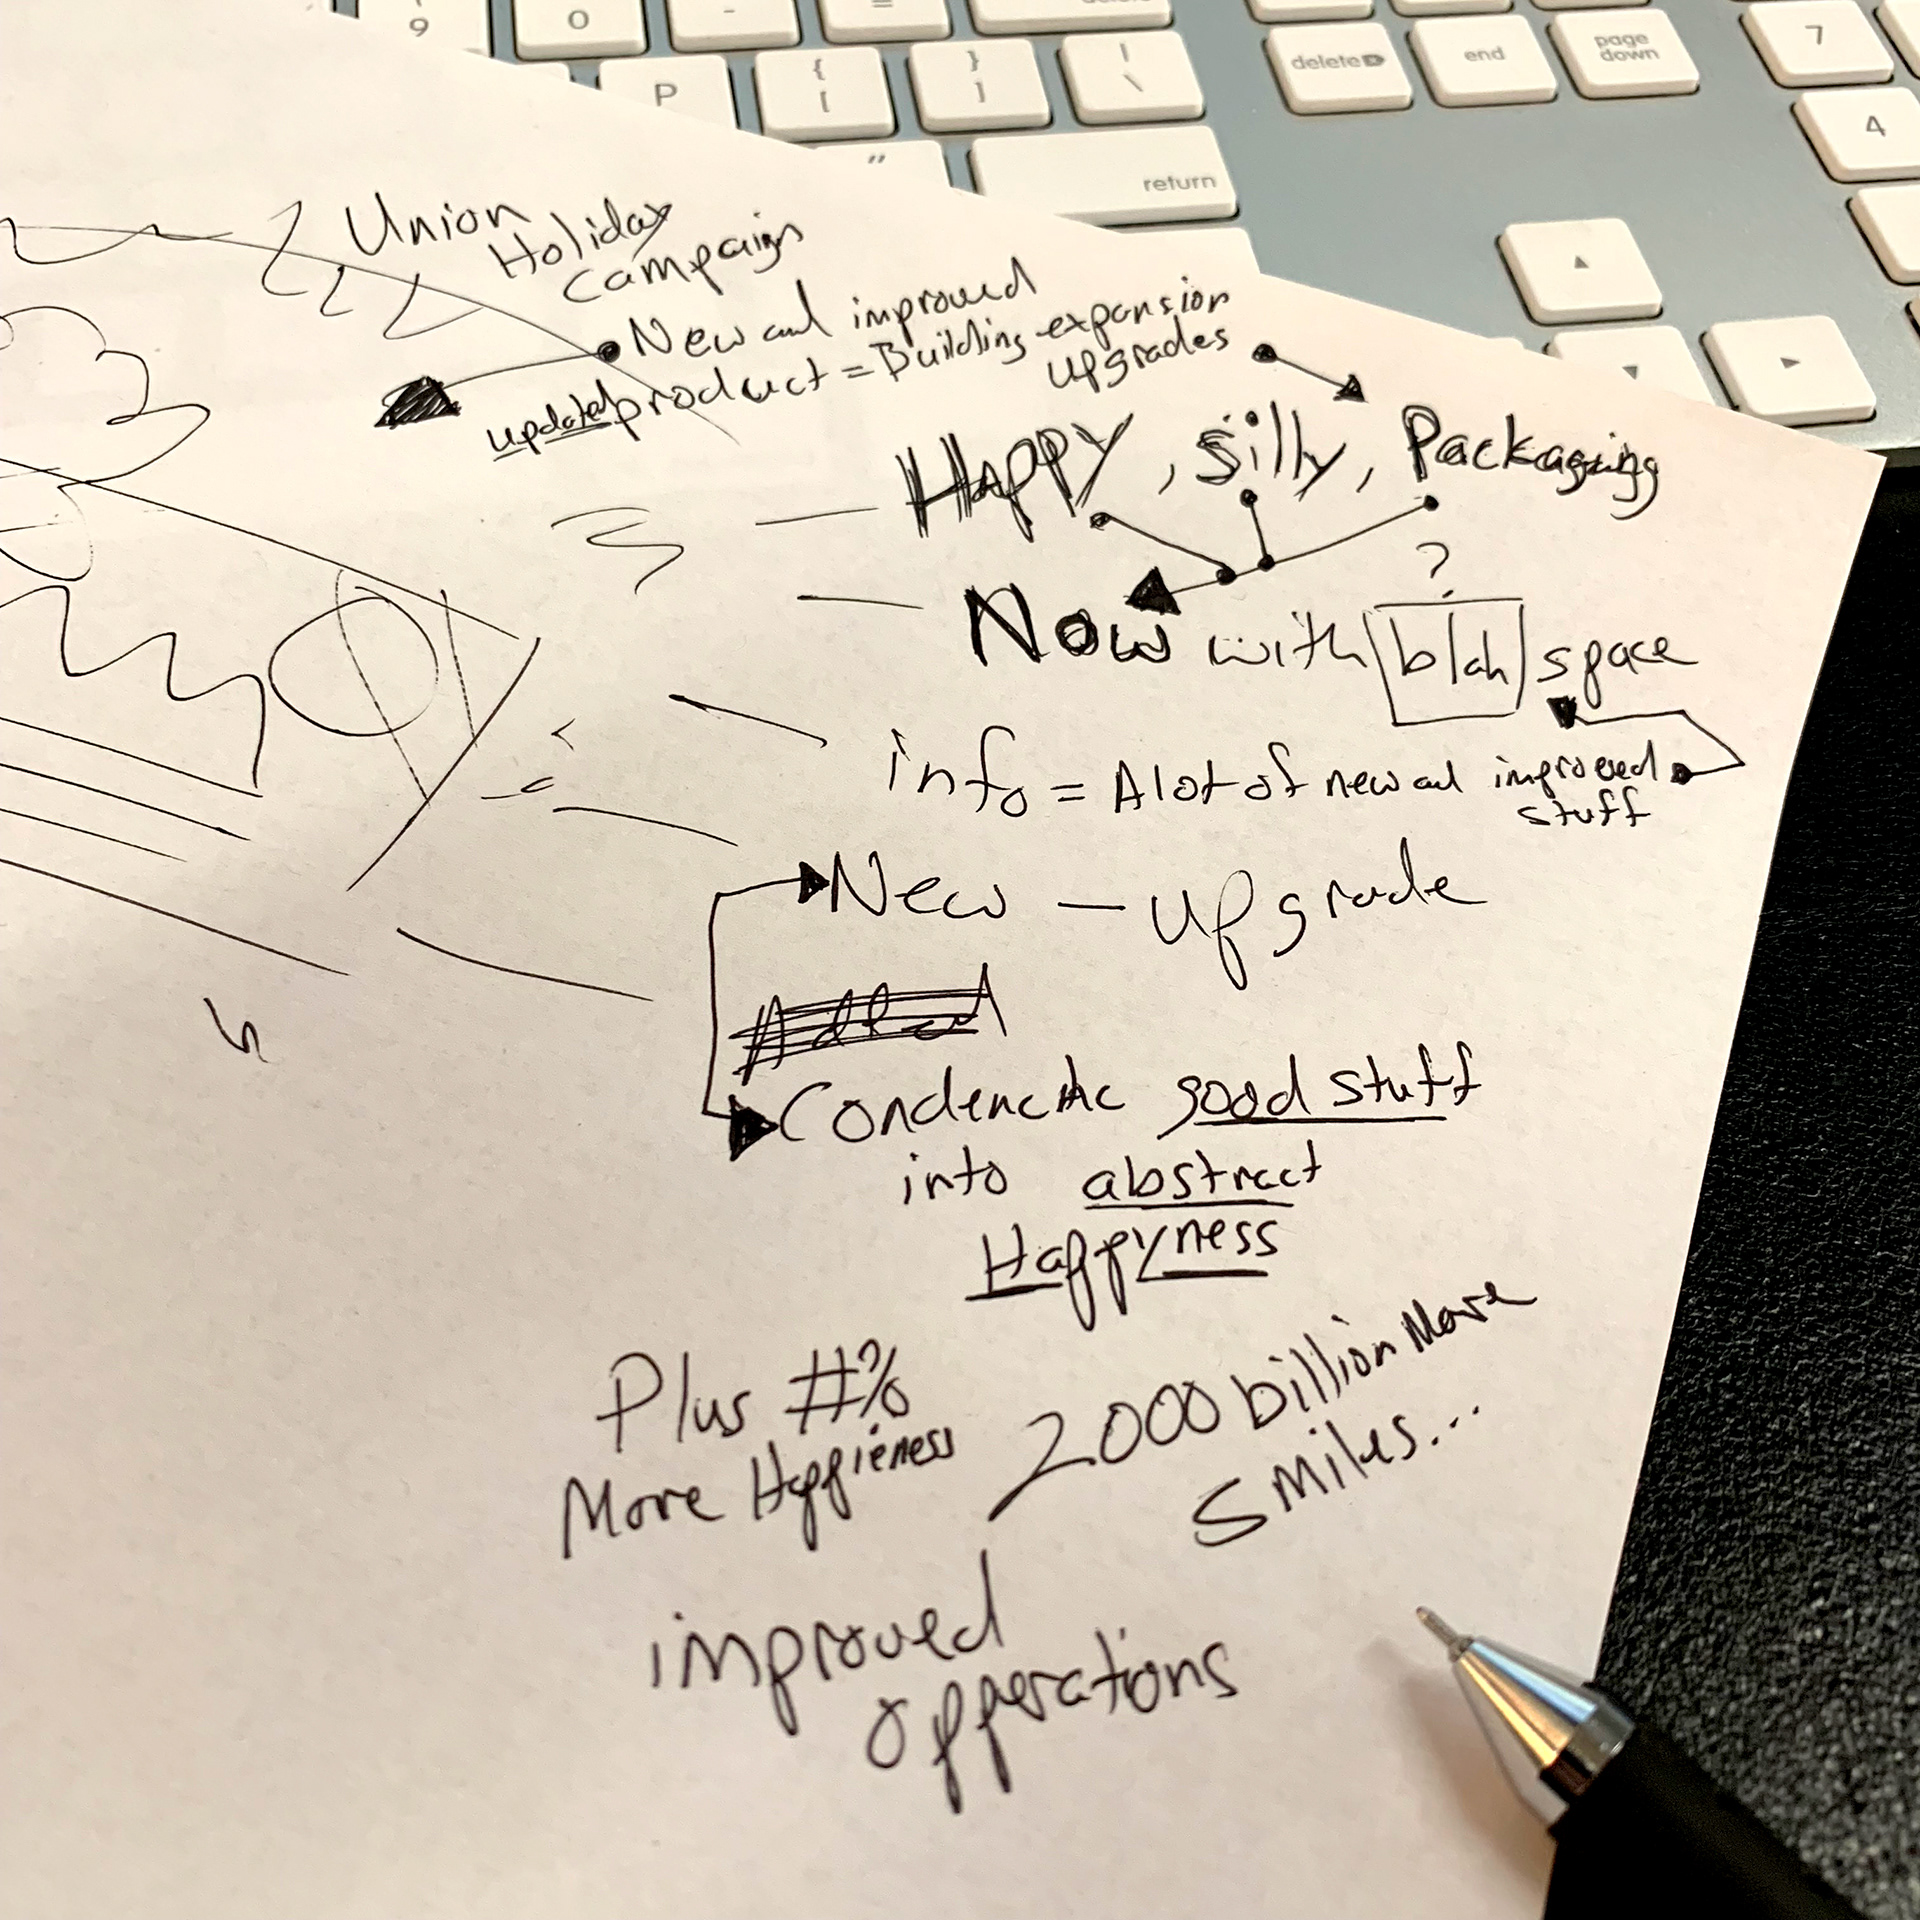 9
O
-
=
P
{
[
}
]
|
\
delete
end
page
down
7
4
"
return
Union
Holiday
Campaign
New and improved
updated product = Building expansion
upgrades
Happy, Silly, Packaging
?
Now with blah space
info = A lot of new and improved
stuff
New - upgrade
good stuff
into abstract
Happyness
Plus #%
More Happieness
2000 billion More
Smiles...
improved
opperations